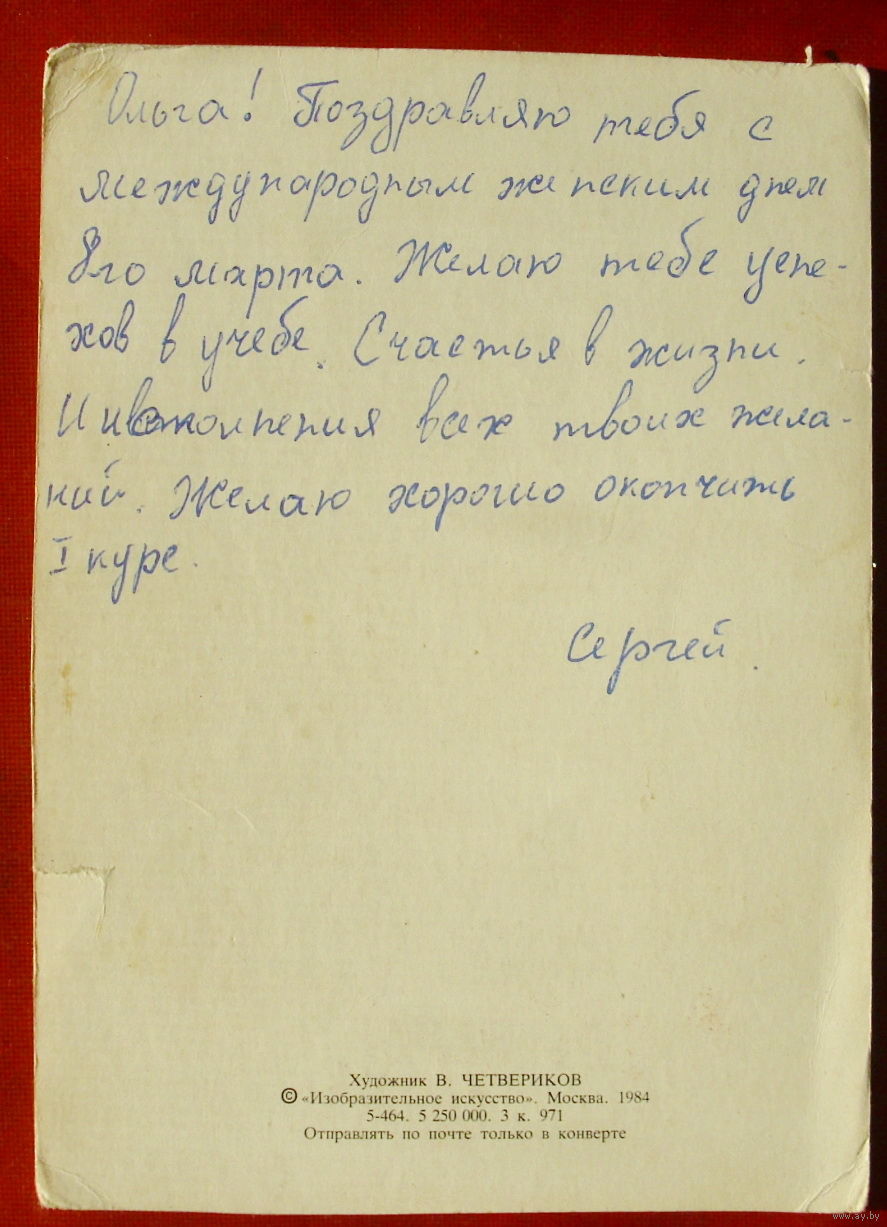 Ольга! Поздравляю тебя с
международным женским днем
8го марта. Желаю тебе успе-
хов в учебе. Счастья в жизни.
И исполнения всех твоих жела-
ний. Желаю хорошо окончить
I курс.
Сергей.
Художник В. ЧЕТВЕРИКОВ
© «Изобразительное искусство». Москва. 1984
5-464. 5 250 000. 3 к. 971
Отправлять по почте только в конверте
www.ay.by